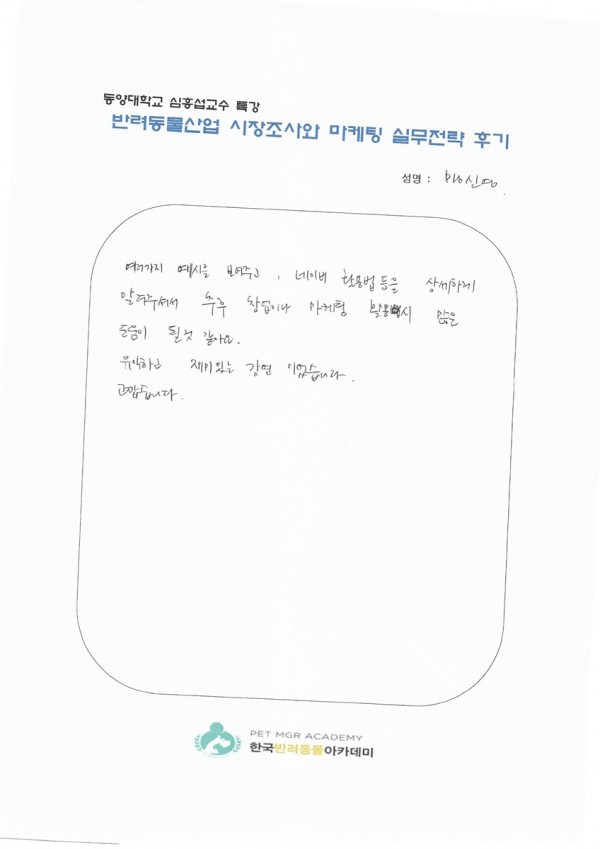 동양대학교 심홍섭교수 특강
반려동물산업 시장조사와 마케팅 실무전략 후기
성명 :
여러가지 예시를 보여주고, 네이버 활용법등을 상세하게
알려주셔서 추후 창업이나 마케팅 활용시 많은
도움이 될것 같아요.
유익하고 재미있는 강연 이었습니다.
고맙습니다.
PET MGR ACADEMY
한국반려동물아카데미